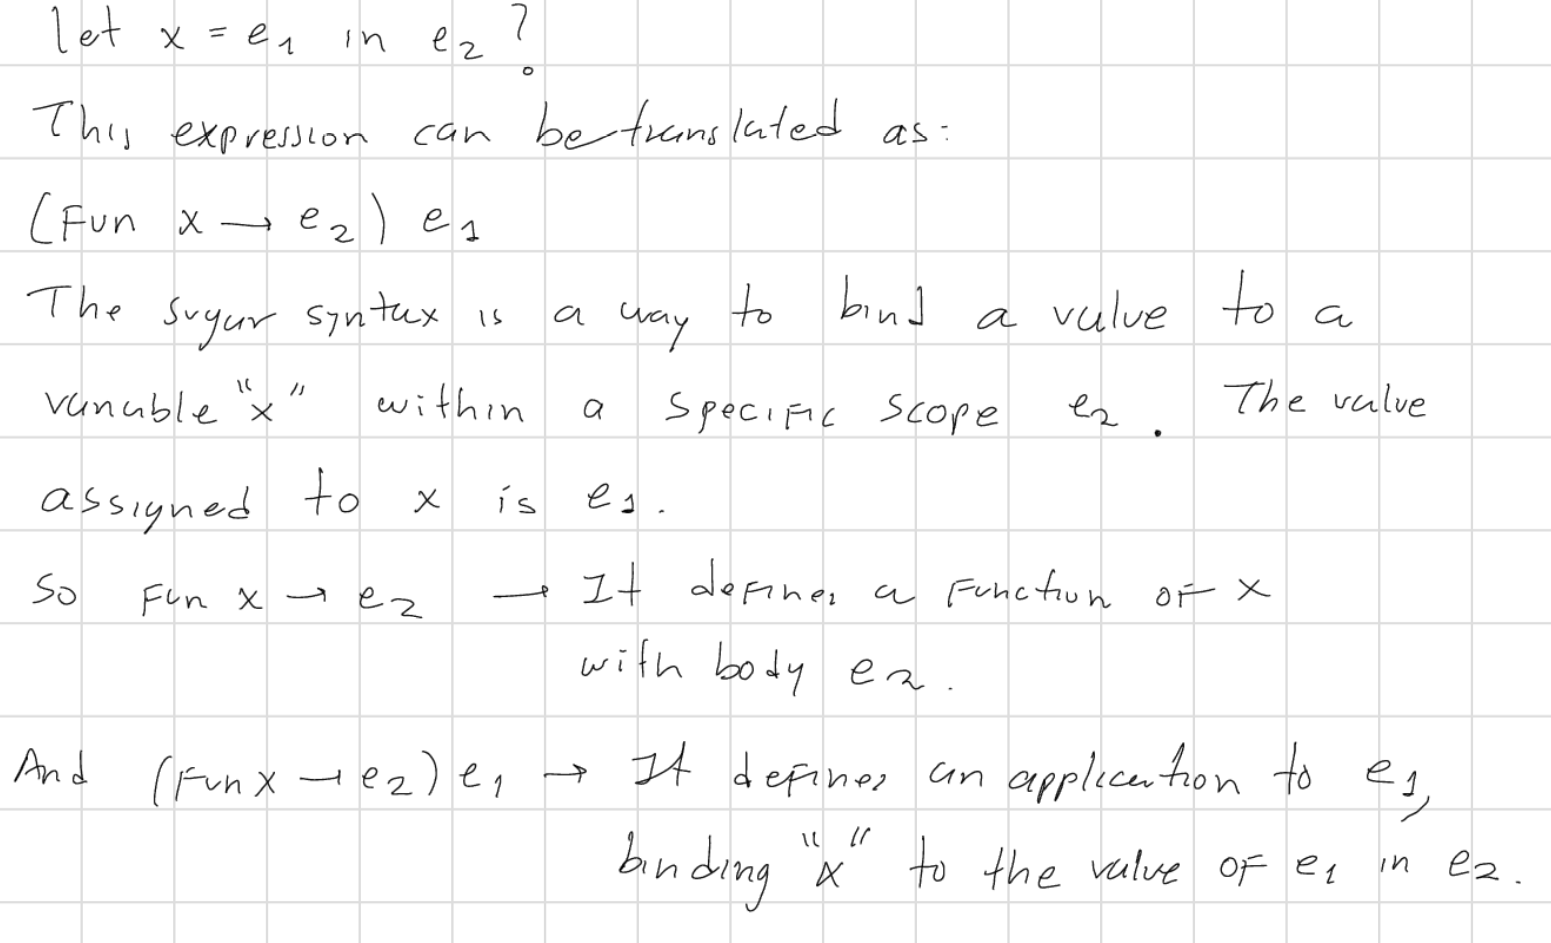 let x = e₁ in e₂?
This expression can be translated as:
(Fun x → e₂) e₁
The sugar syntax is a way to bind a value to a
variable "x" within a specific scope e₂. The value
assigned to x is e₁.
So Fun x → e₂ → It defines a function of x
with body e₂.
And (Fun x → e₂) e₁ → It defines an application to e₁,
binding "x" to the value of e₁ in e₂.